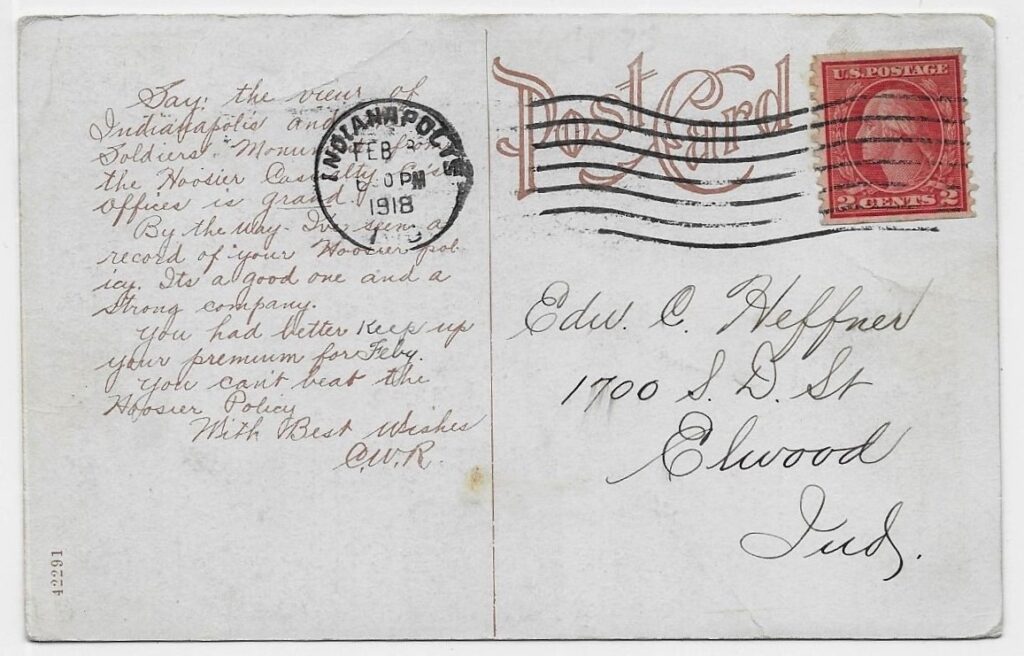 Say: the view of
Indianapolis and
Soldiers' Monument from
the Hoosier Casualty Co's
offices is grand
By the way. I've seen a
record of your Hoosier pol-
icy. Its a good one and a
strong company.
You had better Keep up
your premium for Feby.
You can't beat the
Hoosier Policy
With Best Wishes
C.W.R.
42291
INDIANAPOLIS
FEB
30 PM
1918
Post Card
U.S. POSTAGE
2 CENTS 2
Edw. C. Heffner
1700 S. D. St
Elwood
Ind.